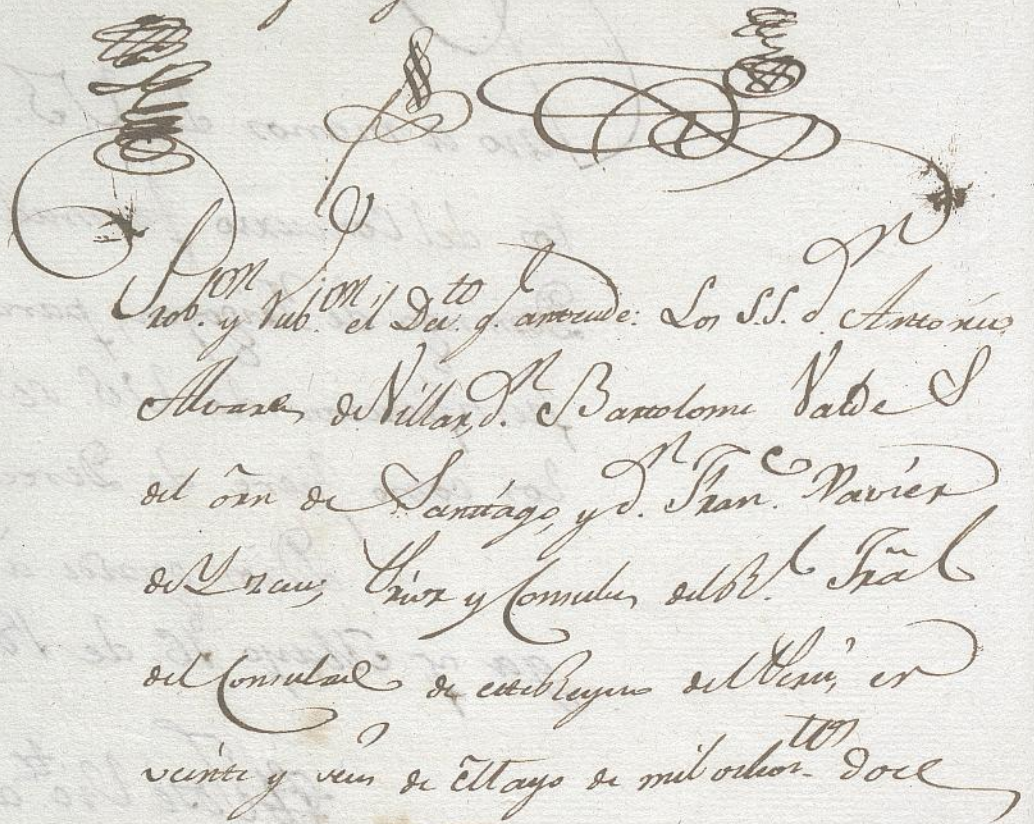 Prob.ron y Rub.ron el Dec.to q. antecede: Los S.S. d.n Antonio
Alvares de Villar, d.n Bartolome Valdes
del ôrn de Santiágo, y d.n Fran.co Xaviér
de Yzcue, Priôr y Consules del R.l Trãl
del Consulado de este Reyno del Perú, en
veinte y seis de Mayo de mil ochos.tos doce